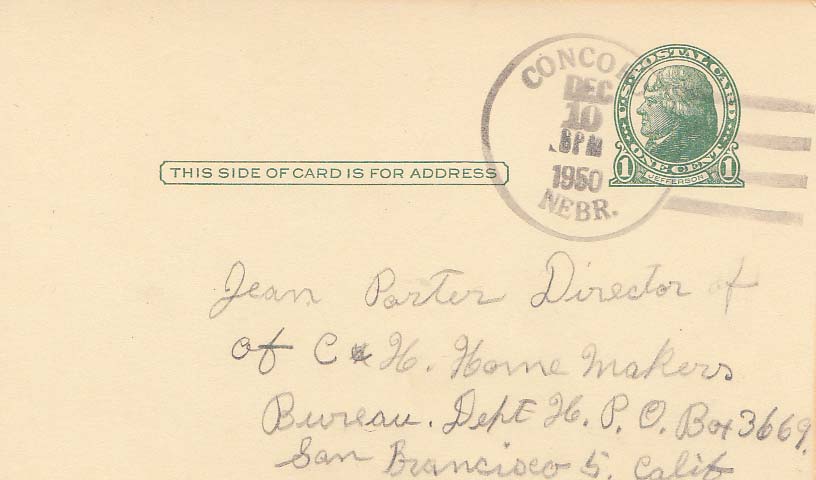 CONCO
DEC
10
8PM
1950
NEBR.
U.S. POSTAL CARD
1 ONE CENT 1
JEFFERSON
THIS SIDE OF CARD IS FOR ADDRESS
Jean Porter Director of
of C & H. Home Makers
Bureau. Dept H. P. O. Box 3669.
San Francisco 5. Calif